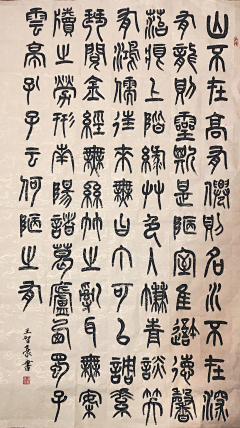 山不在高有僊則名水不在深
有龍則靈斯是陋室惟吾德馨
菭痕上階綠艸色入簾青談笑
有鴻儒往來無白丁可以調素
琴閱金經無絲竹之亂耳無案
牘之勞形南陽諸葛廬西蜀子
雲亭孔子云何陋之有
王 書